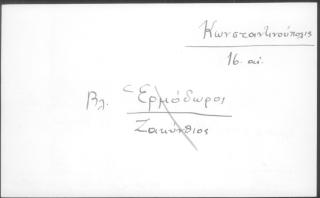 Κωνσταντινούπολις
16. αἰ.
Βλ. Ἑρμόδωρος
Ζακύνθιος